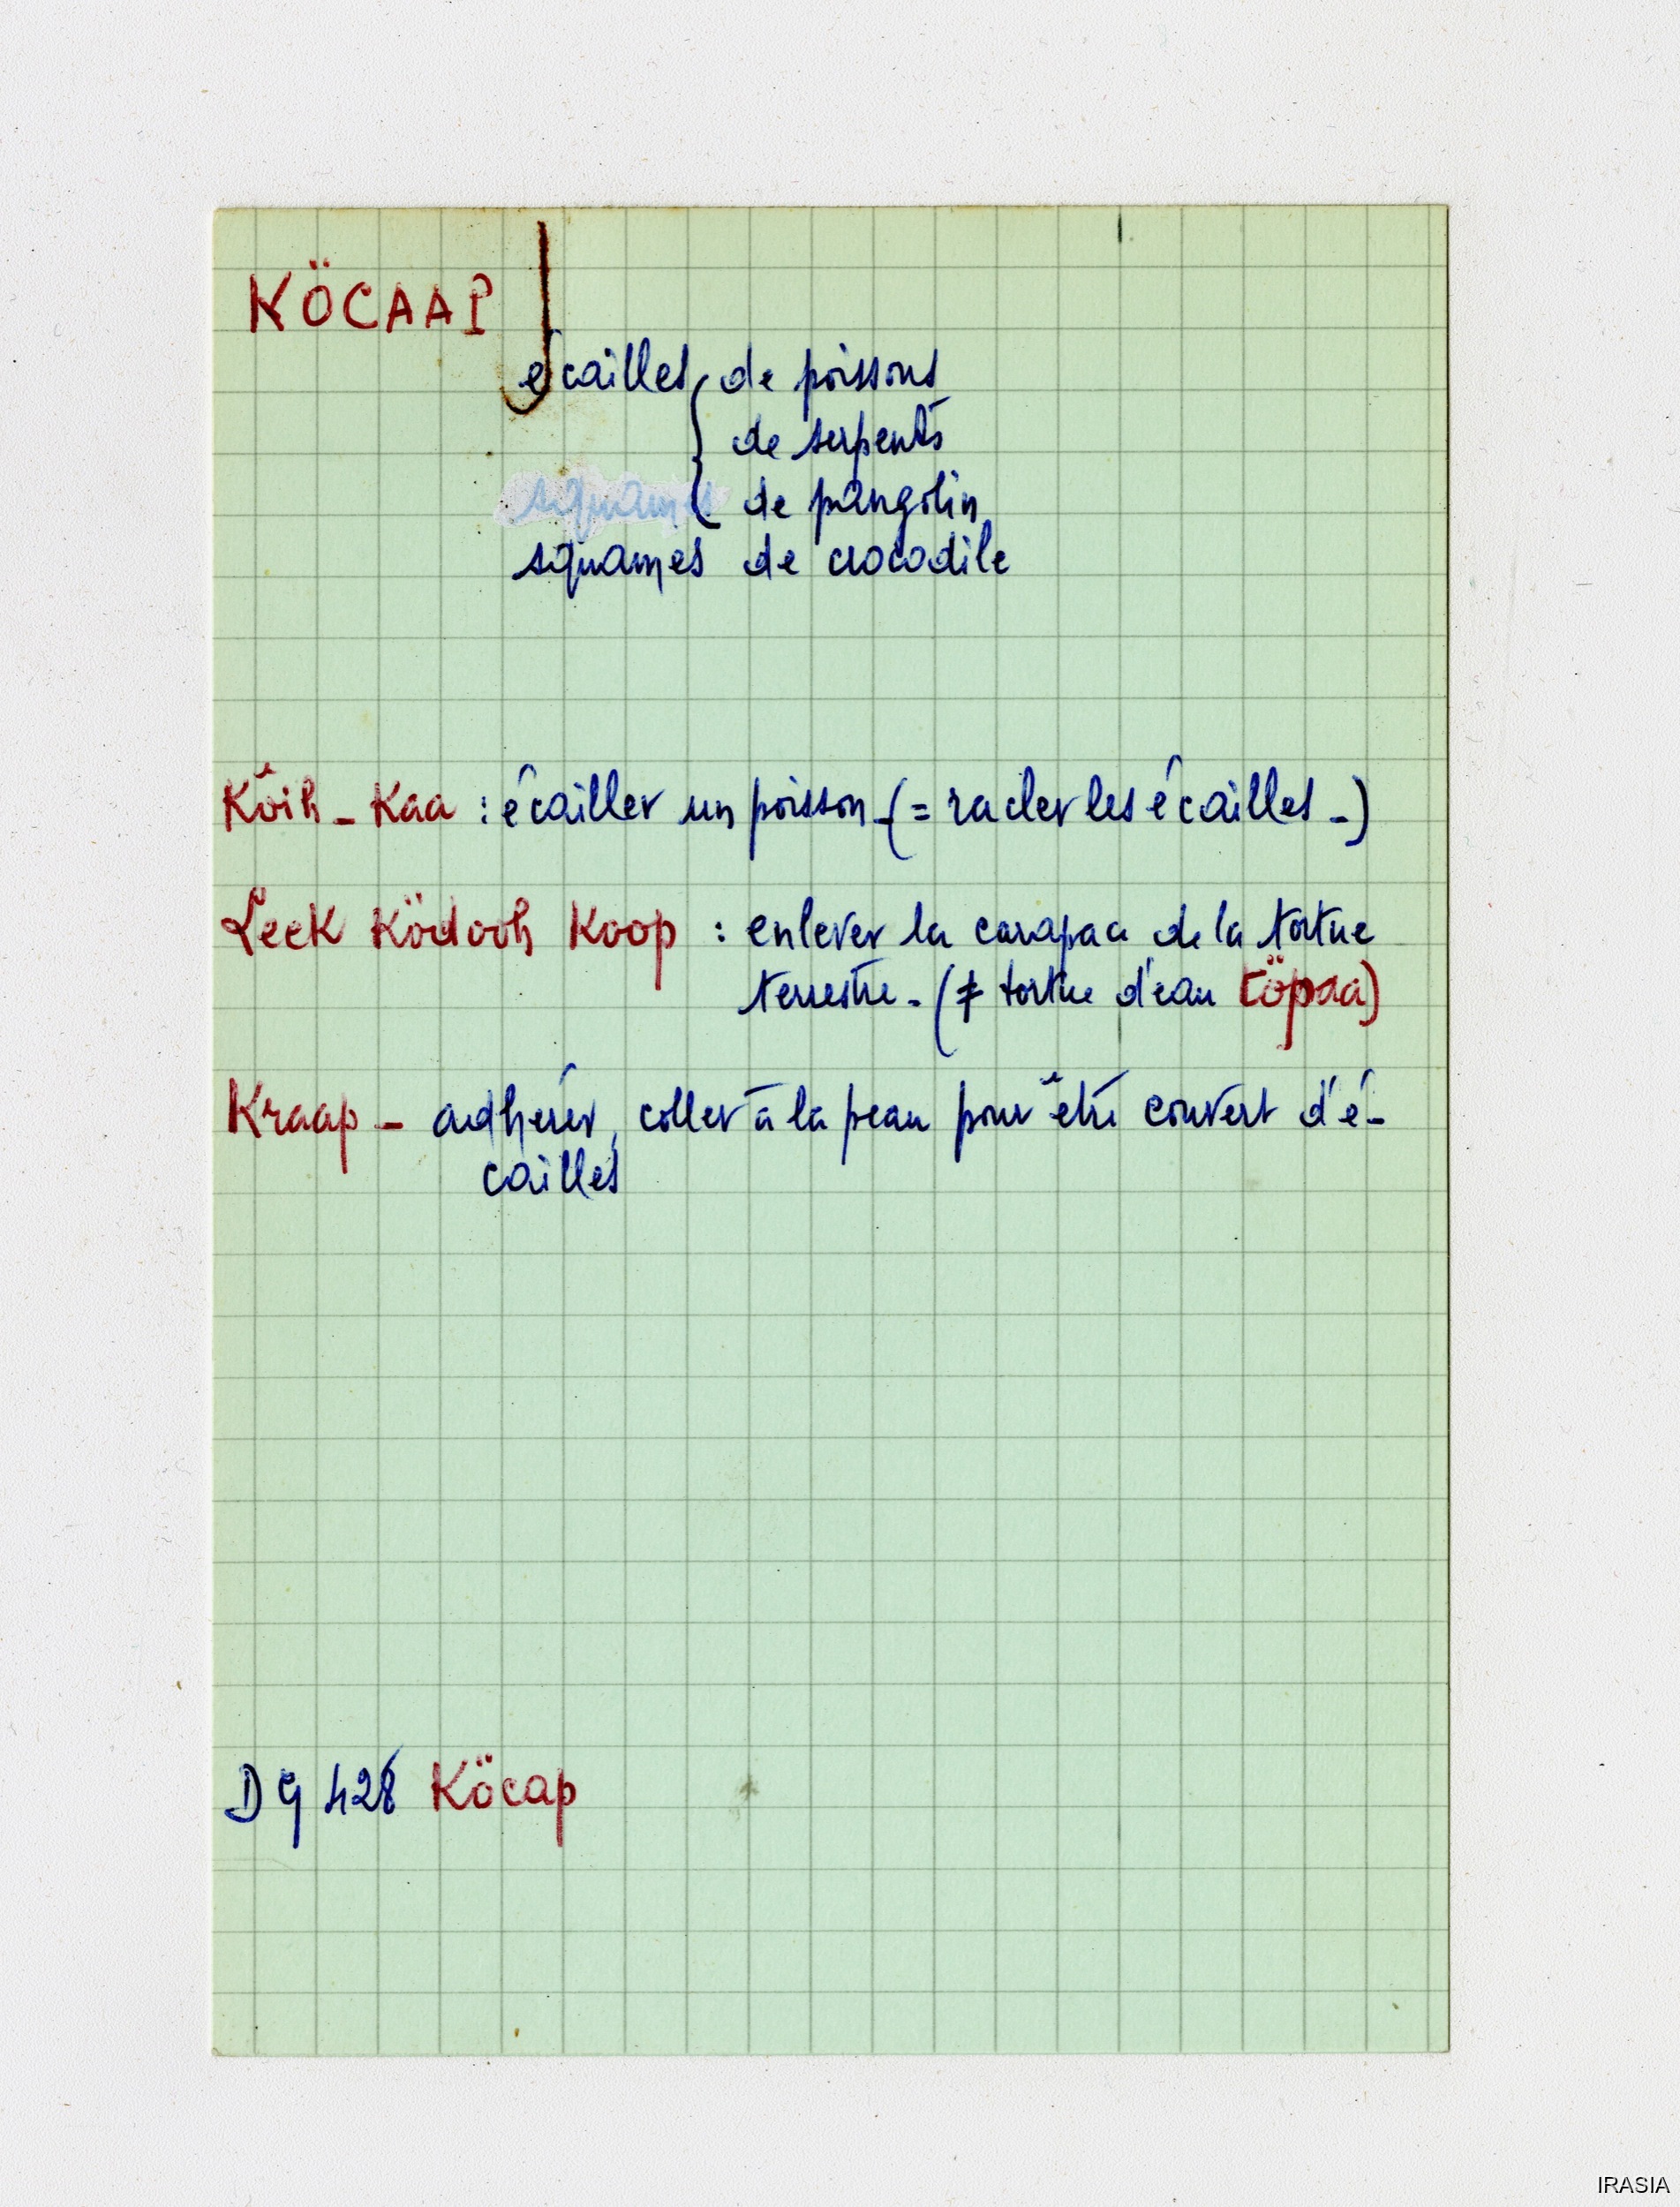 KÖCAAP
écailles { de poissons
de serpents
squames de pangolin
squames de crocodile
Kôih - Kaa : écailler un poisson - (= racler les écailles -)
Leek Ködooh Koop : enlever la carapace de la tortue
terrestre - (≠ tortue d'eau Cöpaa)
Kraap - adhérer, coller à la peau pour être couvert d'é-
cailles
DG 428 Köcap
IRASIA